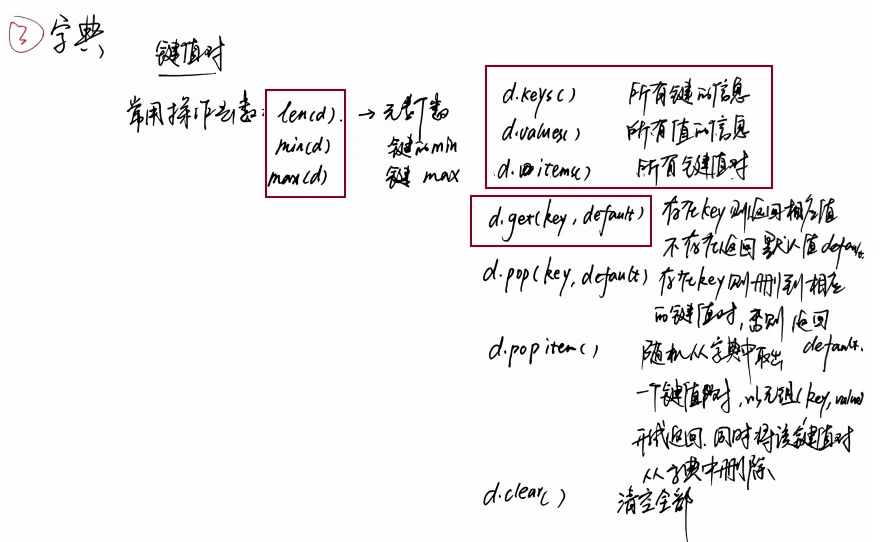 ③ 字典
键值对
常用操作函数: len(d). → 元素个数
min(d) 键的min
max(d) 键 max
d.keys() 所有键的信息
d.values() 所有值的信息
d.items() 所有键值对
d.get(key, default) 存在key则返回相应值
不存在返回默认值default.
d.pop(key, default) 存在key则删到相应
的键值对, 否则返回
default.
d.popitem() 随机从字典中取出
一个键值对, 以元组(key, value)
形式返回. 同时将该键值对
从字典中删除
d.clear() 清空全部